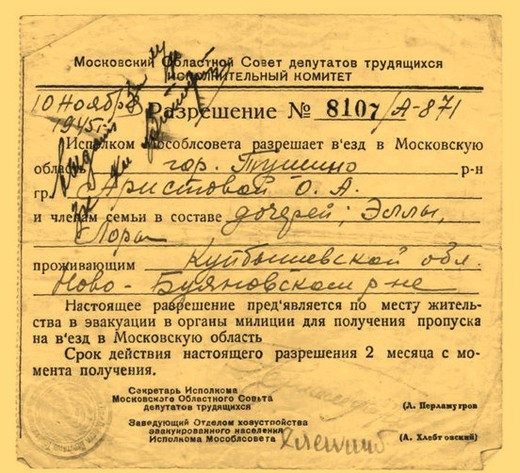 Московский Областной Совет депутатов трудящихся
ИСПОЛНИТЕЛЬНЫЙ КОМИТЕТ
10 Ноября
1945 г.
Разрешение № 8107/А-871
Исполком Мособлсовета разрешает в'езд в Московскую
область гор. Тушино р-н
гр. Аристовой О. А.
и членам семьи в составе дочерей; Эллы,
Лоры
проживающим Куйбышевской обл.
Ново-Буяновском р-не
Настоящее разрешение пред'является по месту житель-
ства в эвакуации в органы милиции для получения пропуска
на в'езд в Московскую область
Срок действия настоящего разрешения 2 месяца с мо-
мента получения.
Секретарь Исполкома
Московского Областного Совета
депутатов трудящихся
(Л. Перламутров
Заведующий Отделом хозустройства
эвакуированного населения
Исполкома Мособлсовета
(А. Хлебтовский)